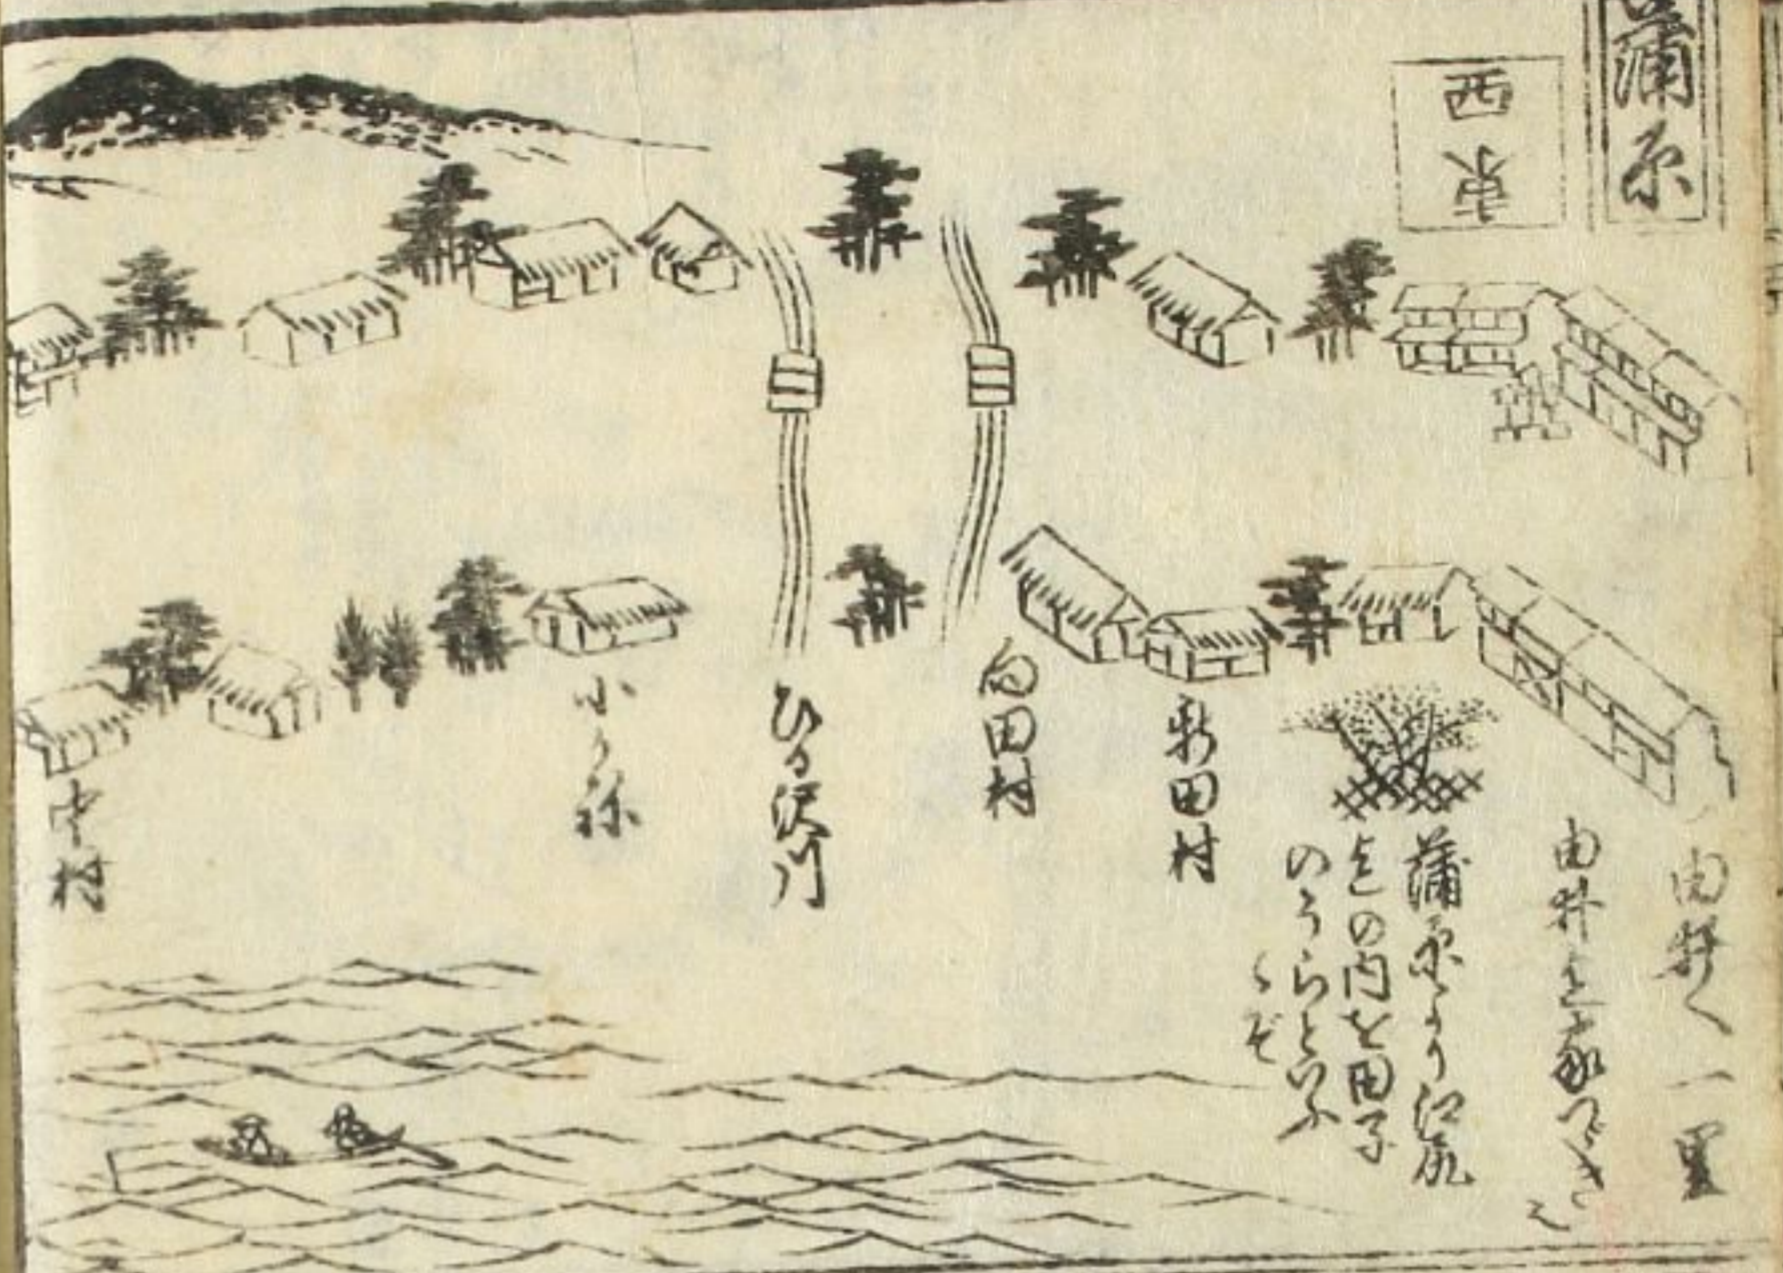 蒲原
西
東
由井へ一里
由井迄家つゞき也
蒲原より江尻
迄の内を田子
のうらといふ
新田村
向田村
ひる沢川
小かね
中村